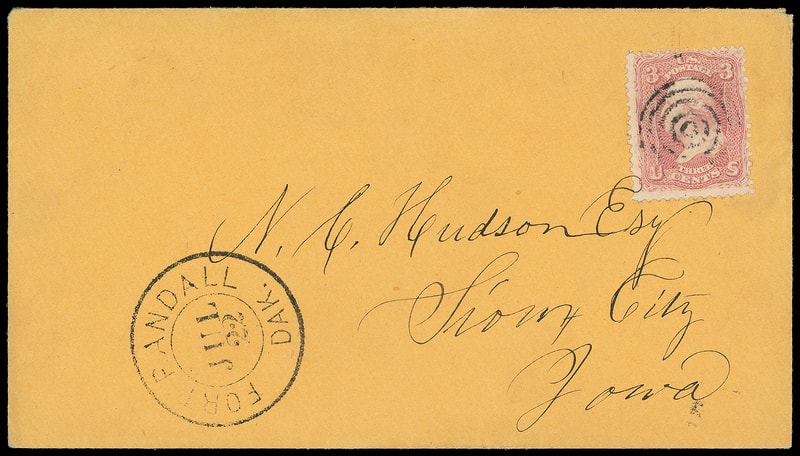 U.S.
POSTAGE
3 3
U THREE S
CENTS
N. C. Hudson Esq
Sioux City
Iowa
FORT RANDALL DAK.
JUL
22